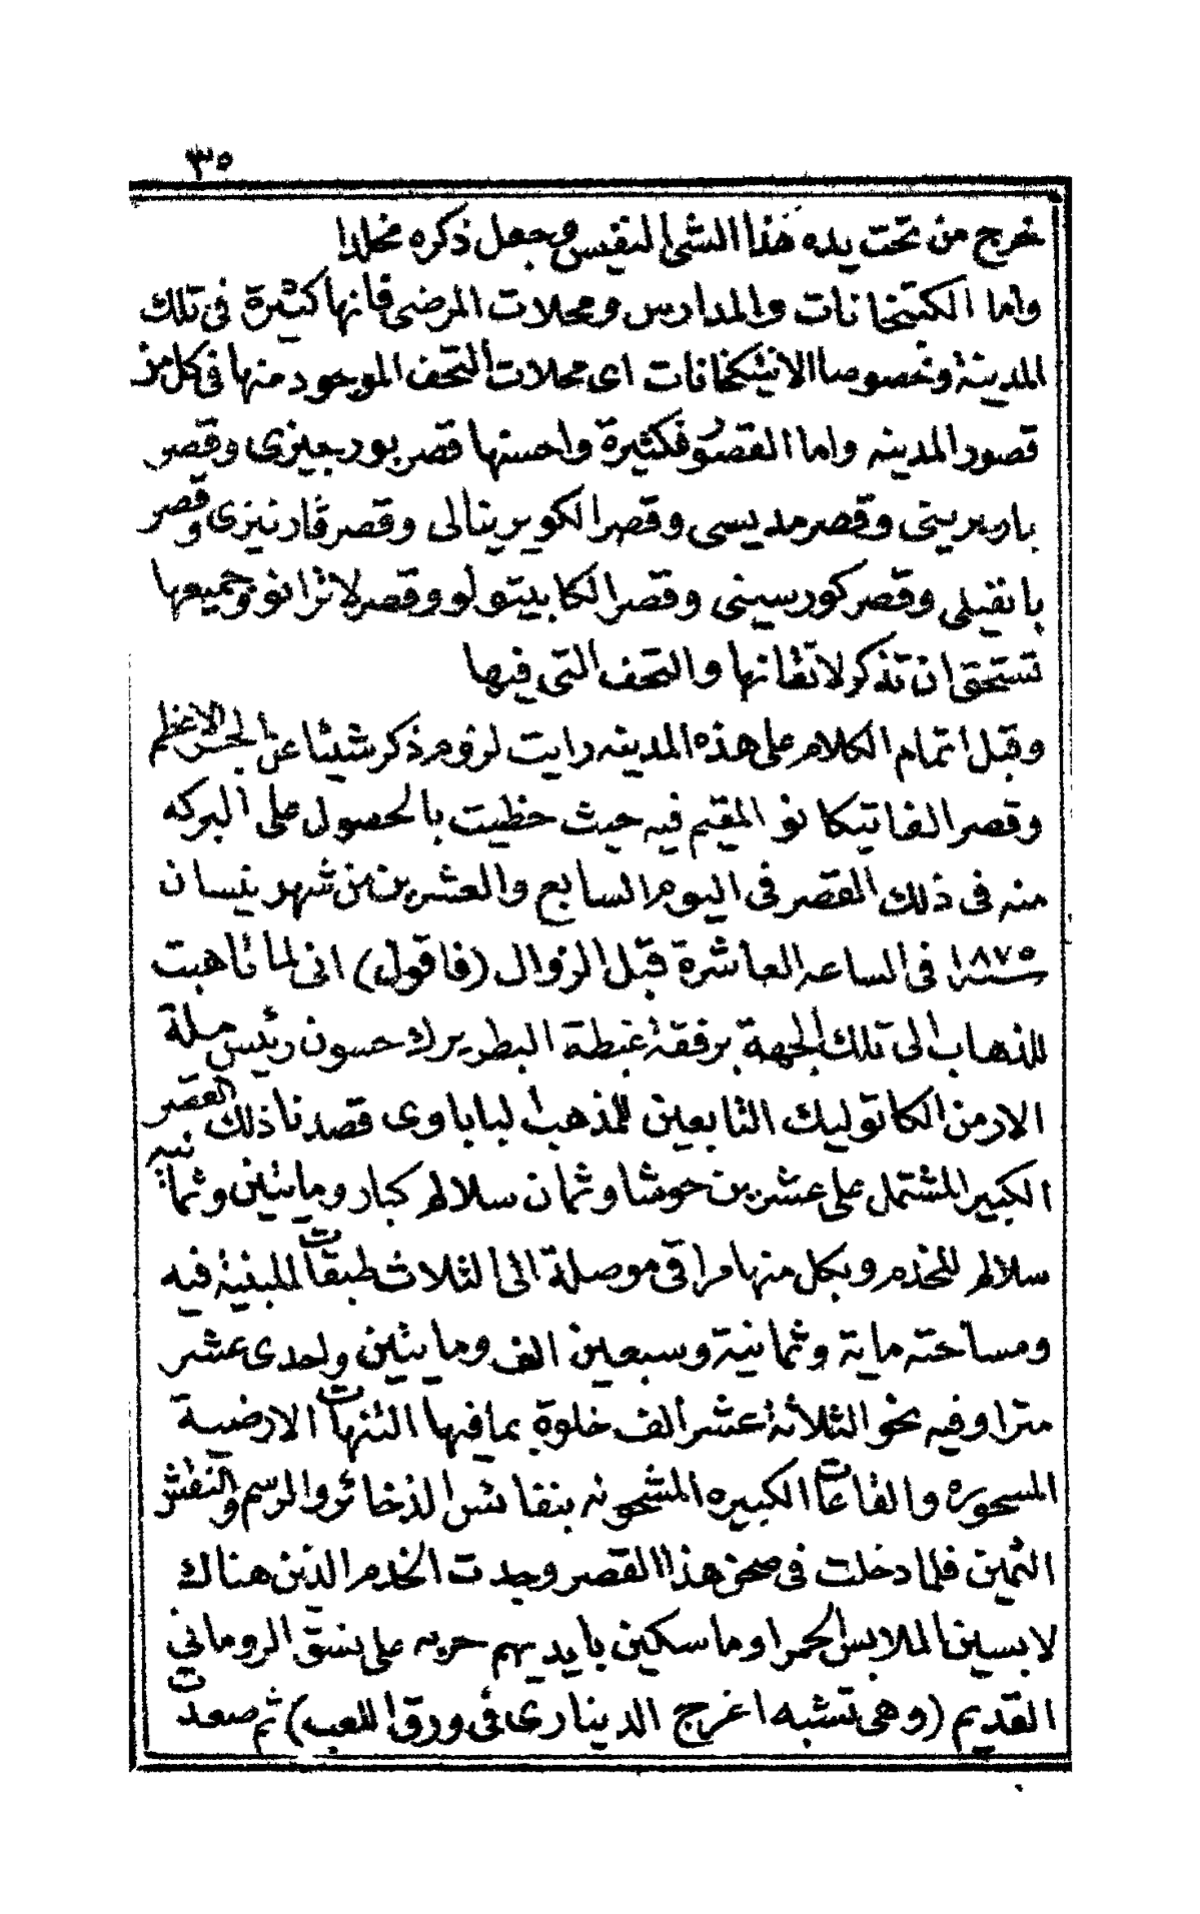 ٣٥
خرج من تحت يده هذا الشي النفيس وجعل ذكره مخلدا
واما الكتبخانات والمدارس ومحلات المرضى فانها كثيرة فى تلك
المدينة وخصوصا الانتيكخانات اى محلات التحف الموجود منها فى كل من
قصور المدينه واما القصور فكثيرة واحسنها قصر بورجيزى وقصر
باربرينى وقصر مديسى وقصر الكويرينالى وقصر فارنيزى وقصر
بانفيلى وقصر كورسينى وقصر الكابيتولو وقصر لاترانو وجميعها
تستحق ان تذكر لاتقانها والتحف التى فيها
وقبل اتمام الكلام على هذه المدينه رايت لزوم ذكر شيئا عن الحبر الاعظم
وقصر الفاتيكانو المقيم فيه حيث حظيت بالحصول على البركه
منه فى ذلك القصر فى اليوم السابع والعشرين من شهر نيسان
سنة ١٨٧٥ فى الساعه العاشرة قبل الزوال (فاقول) انى لما تاهبت
للذهاب الى تلك الجهة برفقة غبطة البطريرك حسون رئيس ملة
الارمن الكاتوليك التابعين للمذهب الباباوى قصدنا ذلك القصر
الكبير المشتمل على عشرين حوشا وثمان سلالم كبار ومايتين وثمانيه
سلالم للخدم وبكل منها مراقى موصلة الى الثلاث طبقات المبنية فيه
ومساحته ماية وثمانية وسبعين الف ومايتين واحدى عشر
مترا وفيه نحو الثلاثة عشر ألف خلوة بما فيها التنهات الارضية
المسحوره والقاعات الكبيره المشحونه بنفائس الذخائر والرسم والنقش
الثمين فلما دخلت فى صحن هذا القصر وجدت الخدم الذين هناك
لابسين الملابس الحمرا وماسكين بايديهم حربه على نسق الرومانى
القديم (وهى تشبه اغرج الدينارى فى ورق اللعب) ثم صعدت